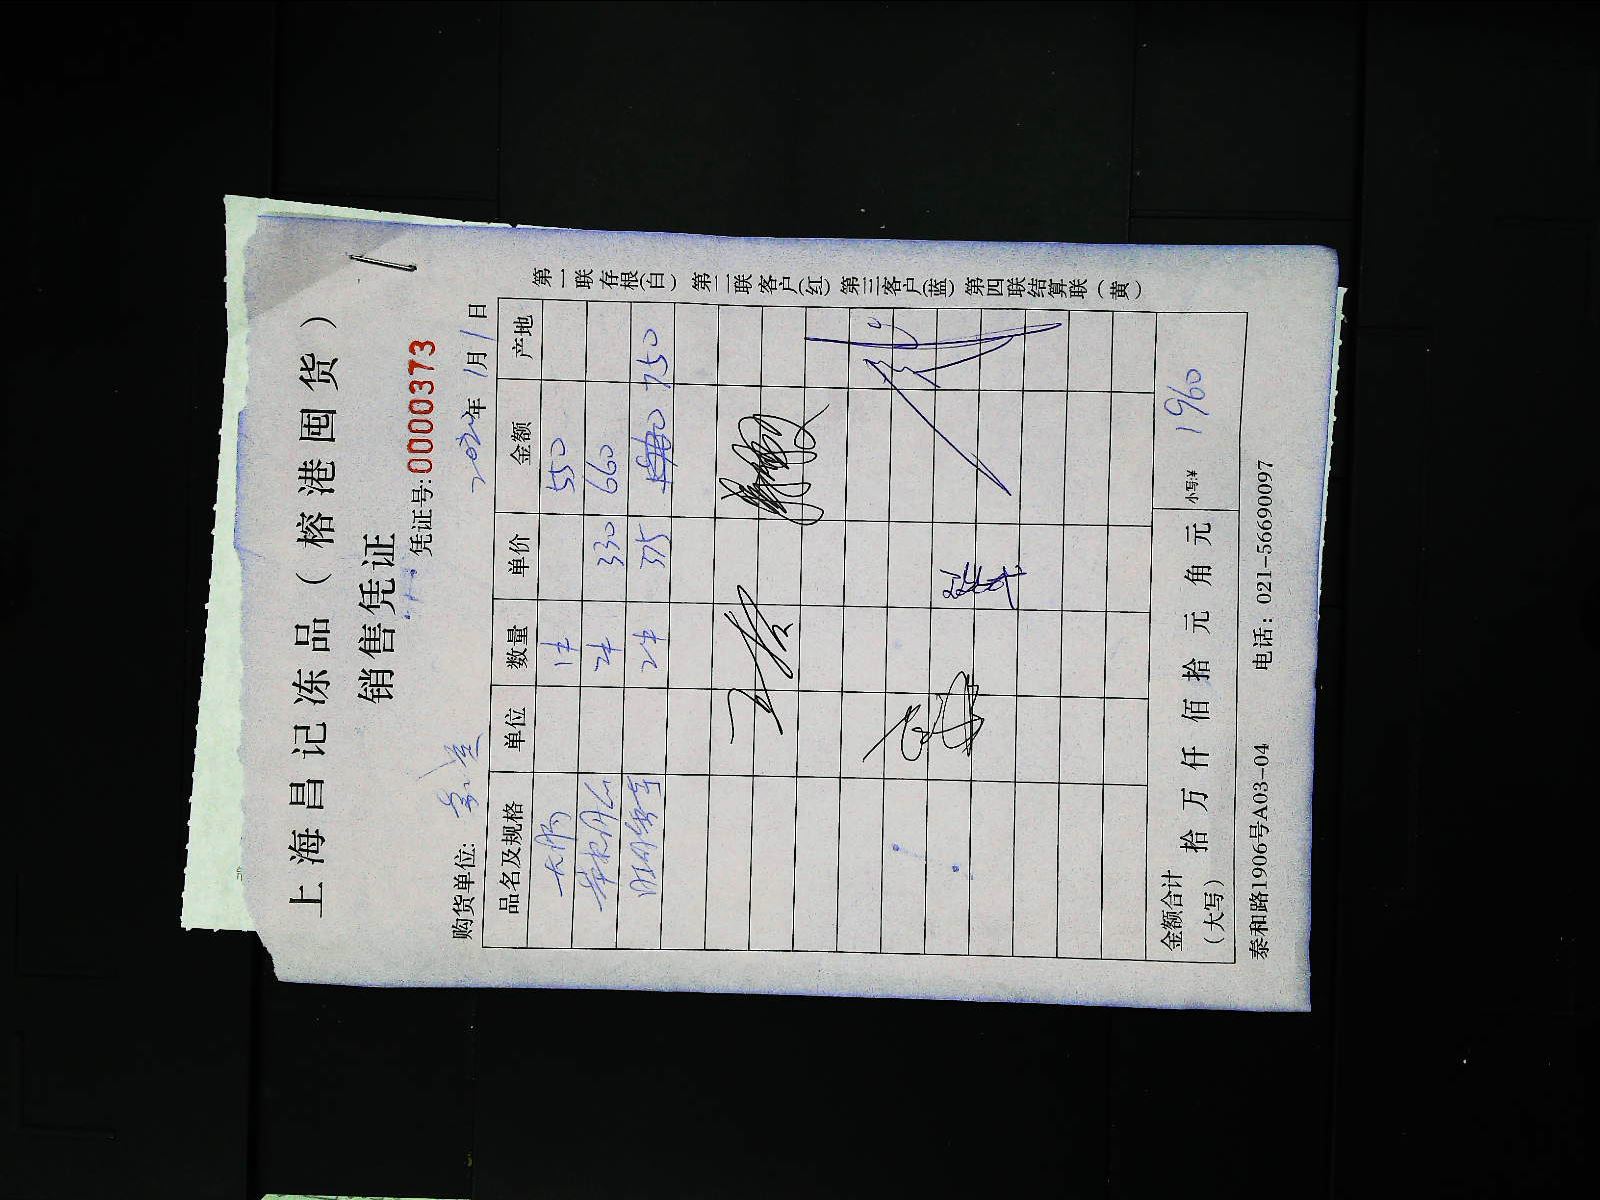 上海昌记冻品（榕港囤货）
销售凭证
凭证号:0000373
购货单位: 2022年1月1日
品名及规格 单位 数量 单价 金额 产地
大肠 1件 550
2件 330 660
2件 375 750
金额合计（大写） 拾 万 仟 佰 拾 元 角 元 小写:¥ 1960
泰和路1906号A03-04 电话: 021-56690097
第一联存根(白) 第二联客户(红) 第三客户(蓝) 第四联结算联(黄)